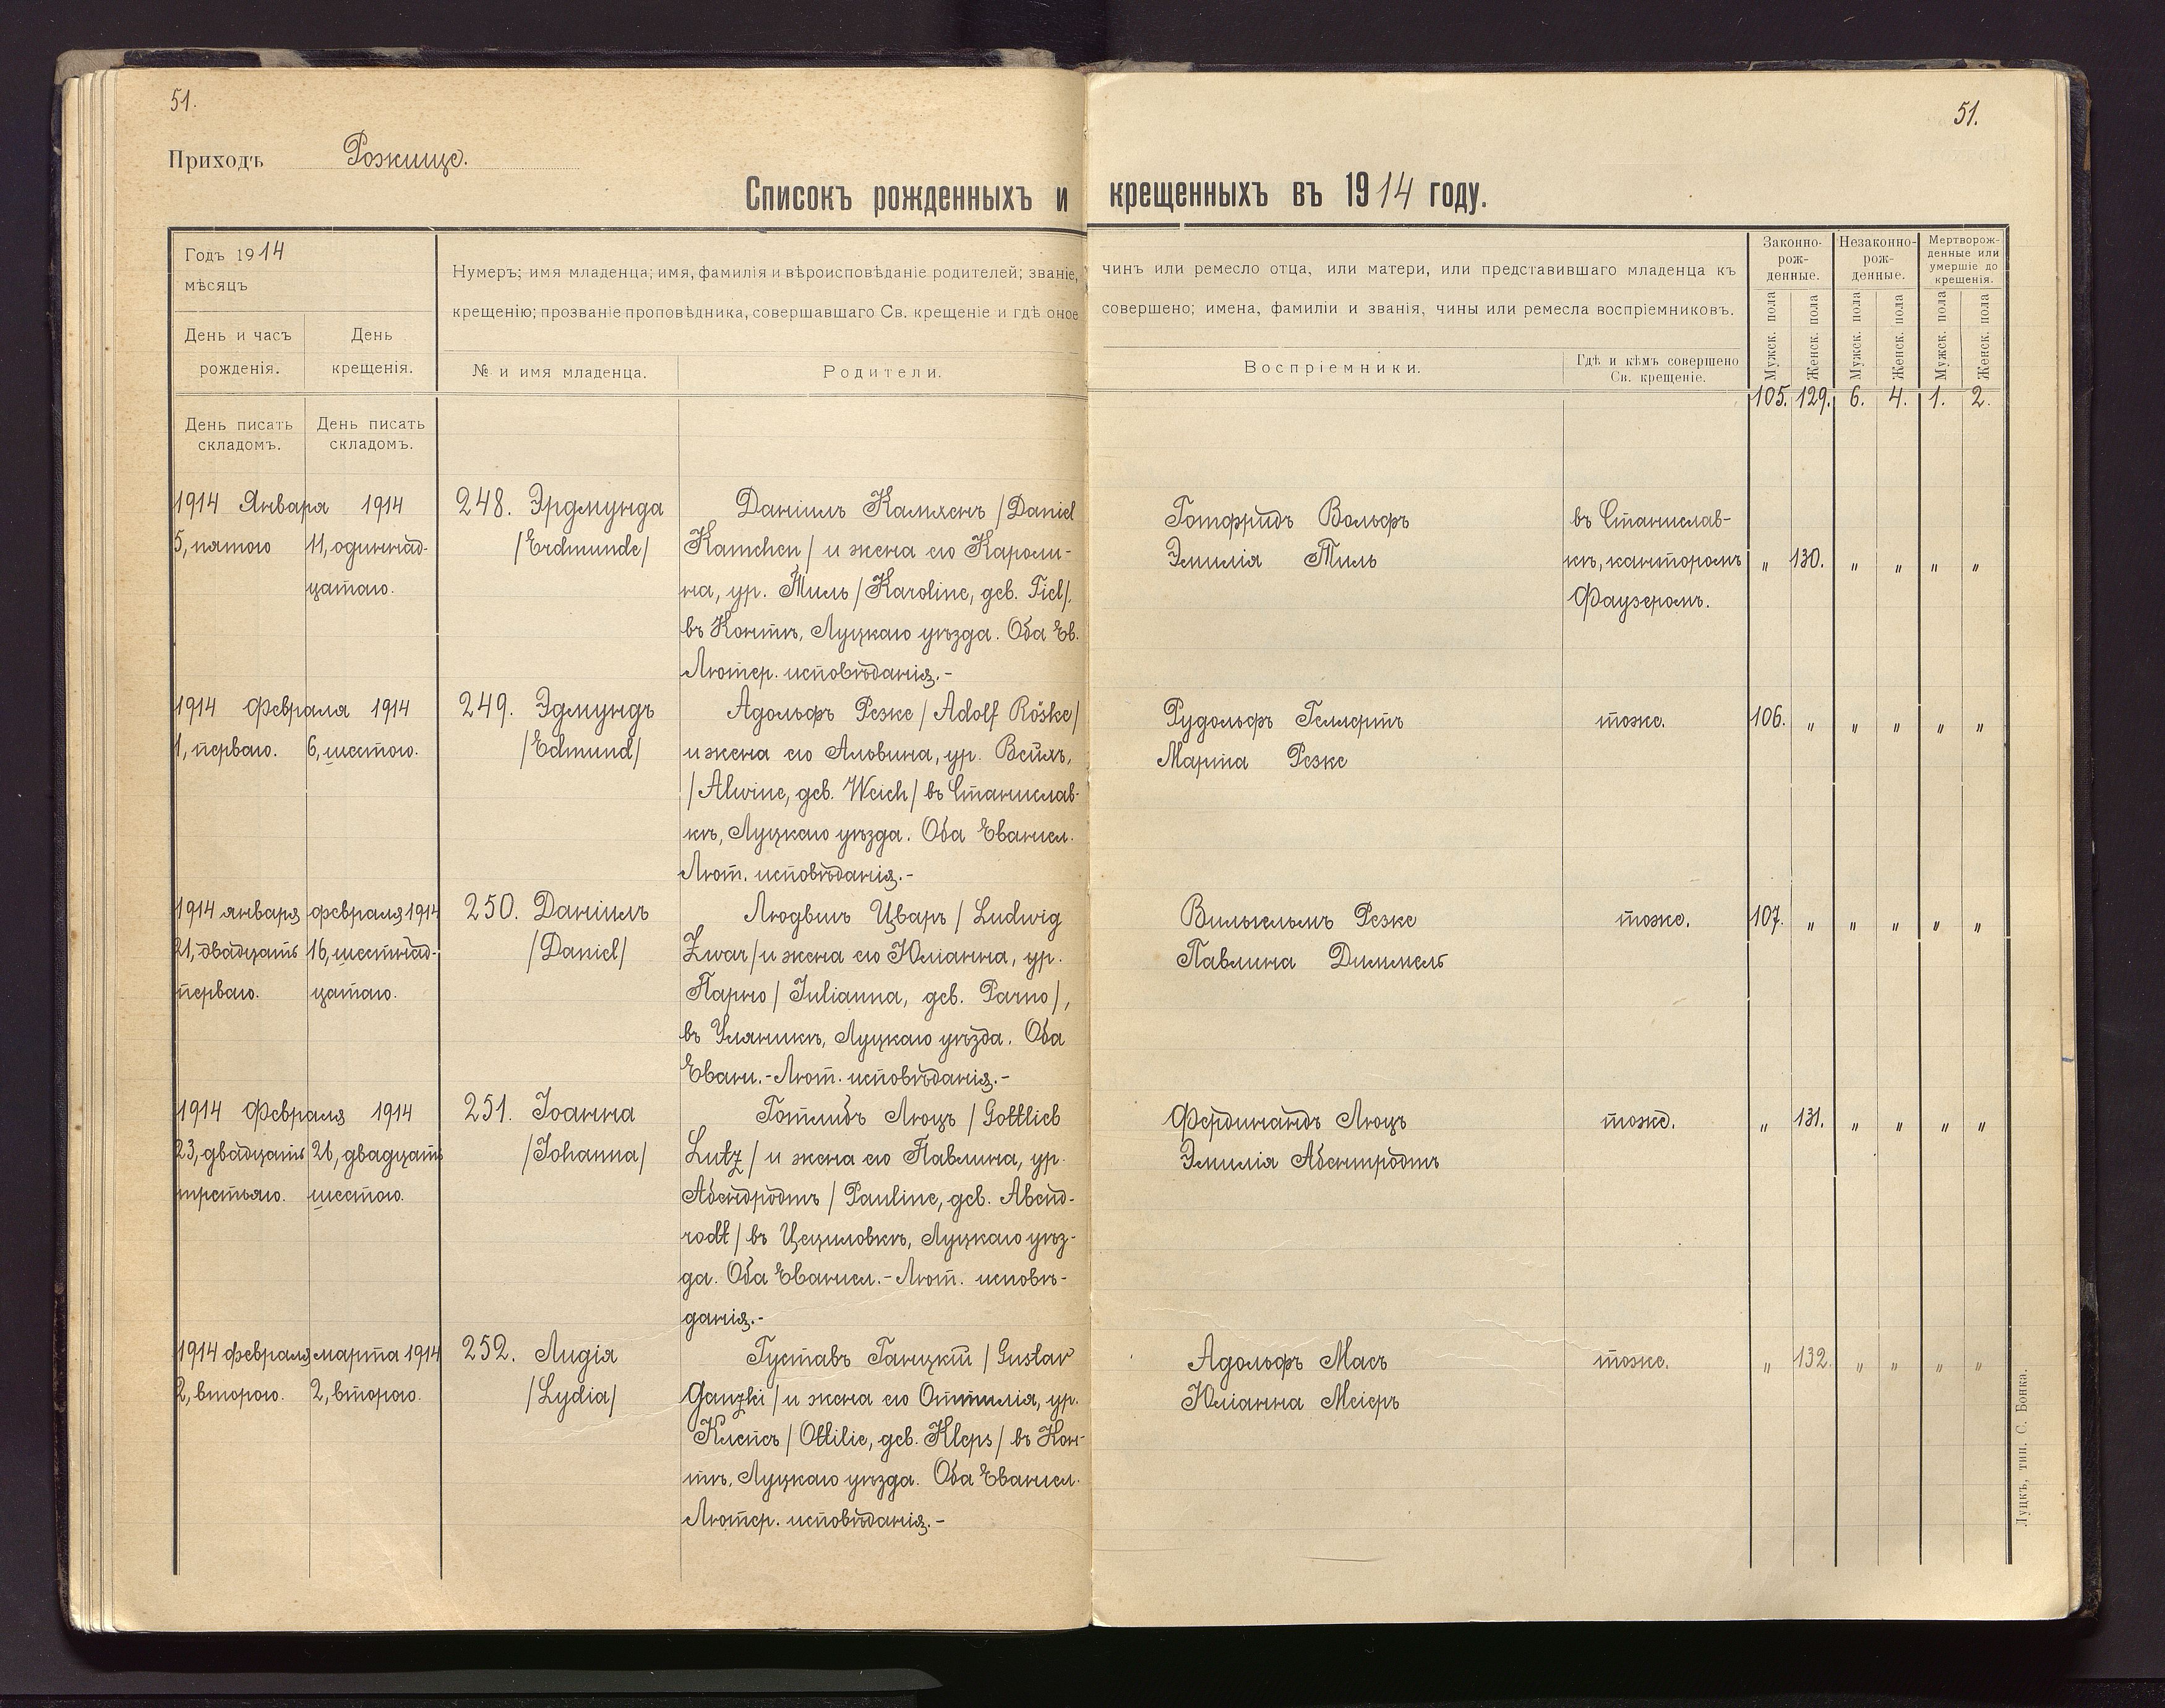 51.
51.
Приходъ Рожище.
Списокъ рожденныхъ и крещенныхъ въ 1914 году.
Годъ 1914
мѣсяцъ
День и часъ рожденія.
День крещенія.
Нумеръ; имя младенца; имя, фамилія и вѣроисповѣданіе родителей; званіе, чинъ или ремесло отца, или матери, или представившаго младенца къ
крещенію; прозваніе проповѣдника, совершавшаго Св. крещеніе и гдѣ оное совершено; имена, фамиліи и званія, чины или ремесла воспріемниковъ.
№ и имя младенца.
Родители.
Воспріемники.
Гдѣ и кѣмъ совершено
Св. крещеніе.
Законно-
рож-
денные.
Незаконно-
рож-
денные.
Мертворож-
денные или
умершіе до
крещенія.
Мужск. пола
Женск. пола
Мужск. пола
Женск. пола
Мужск. пола
Женск. пола
105. 129. 6. 4. 1. 2.
День писать
складомъ.
День писать
складомъ.
1914 Января 1914
5, пятого
11, одиннад-
цатаго.
248. Эрдмунда
/Erdmunde/
Даніилъ Камхенъ /Daniel
Kamchen/ и жена его Кароли-
на, ур. Тиль /Karoline, geb. Tiel/.
въ Контѣ, Луцкаго уѣзда. Оба Ев.
Лютер. исповѣданія.-
Готфридъ Вольфъ
Эмилія Тиль
въ Станислав-
кѣ, канторомъ
Фаузеромъ.
„ 130. „ „ „ „
1914 Февраля 1914
1, перваго.
6, шестого.
249. Эдмундъ
/Edmund/
Адольфъ Резке /Adolf Röske/
и жена его Аловина, ур. Вейхъ,
/Alwine, geb. Weich/ въ Станислав-
кѣ, Луцкаго уѣзда. Оба Евангел.
Лют. исповѣданія.-
Рудольфъ Геллертъ
Марта Резке
тоже.
106. „ „ „ „ „
1914 января
21, двадцать
перваго.
февраля 1914
16, шестнад-
цатаго.
250. Даніилъ
/Daniel/
Людвигъ Цваръ /Ludwig
Zwar/ и жена его Юліанна, ур.
Парно /Julianna, geb. Parno/,
въ Уляникѣ, Луцкаго уѣзда. Оба
Еванг.-Лют. исповѣданія.-
Вильгельмъ Резке
Павлина Диммель
тоже.
107. „ „ „ „ „
1914 Февраля 1914
23, двадцать
третьяго.
26, двадцать
шестого.
251. Іоанна
/Johanna/
Готлибъ Люцъ /Gottlieb
Lutz/ и жена его Павлина, ур.
Абендродтъ /Pauline, geb. Abend-
rodt/ въ Цециловкѣ, Луцкаго уѣз-
да. Оба Евангел.-Лют. исповѣ-
данія.-
Фердинандъ Люцъ
Эмилія Абентродтъ
тоже.
„ 131. „ „ „ „
1914 февраля
2, второго.
марта 1914
2, второго.
252. Лидія
/Lydia/
Густавъ Ганцкій /Gustav
Ganzki/ и жена его Оттилія, ур.
Клепсъ /Ottilie, geb. Kleps/ въ Кон-
тѣ, Луцкаго уѣзда. Оба Евангел.
Лютер. исповѣданія.-
Адольфъ Масъ
Юліанна Меіеръ
тоже.
„ 132. „ „ „ „
Луцкъ, тип. С. Бонка.